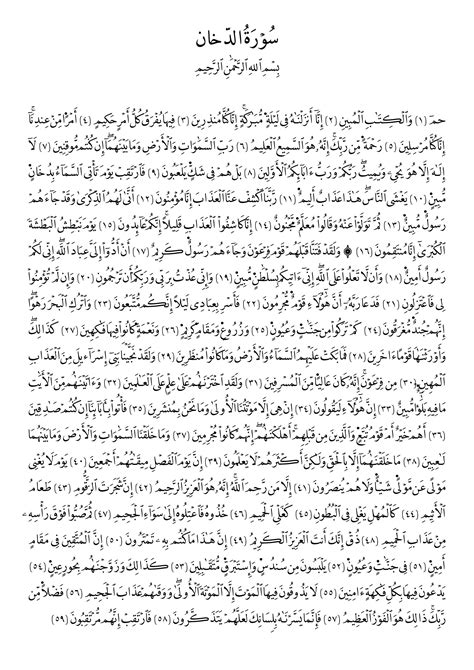 سُوۡرَةُ الدّخان
بِسۡمِ ٱللهِ ٱلرَّحۡمَٰنِ ٱلرَّحِيمِ
حمٓ ﴿١﴾ وَٱلۡڪِتَٰبِ ٱلۡمُبِينِ ﴿٢﴾ إِنَّآ أَنزَلۡنَٰهُ فِى لَيۡلَةٍ۬ مُّبَٰرَكَةٍ‌ۚ إِنَّا كُنَّا مُنذِرِينَ ﴿٣﴾ فِيہَا يُفۡرَقُ كُلُّ أَمۡرٍ حَكِيمٍ ﴿٤﴾ أَمۡرً۬ا مِّنۡ عِندِنَآ‌ۚ
إِنَّا كُنَّا مُرۡسِلِينَ ﴿٥﴾ رَحۡمَةً۬ مِّن رَّبِّكَ‌ۚ إِنَّهُ ۥ هُوَ ٱلسَّمِيعُ ٱلۡعَلِيمُ ﴿٦﴾ رَبِّ ٱلسَّمَٰوَٰتِ وَٱلۡأَرۡضِ وَمَا بَيۡنَهُمَآ‌ۖ إِن كُنتُم مُّوقِنِينَ ﴿٧﴾ لَآ
إِلَٰهَ إِلَّا هُوَ يُحۡىِۦ وَيُمِيتُ‌ۖ رَبُّكُمۡ وَرَبُّ ءَابَآٮِٕكُمُ ٱلۡأَوَّلِينَ ﴿٨﴾ بَلۡ هُمۡ فِى شَكٍّ۬ يَلۡعَبُونَ ﴿٩﴾ فَٱرۡتَقِبۡ يَوۡمَ تَأۡتِى ٱلسَّمَآءُ بِدُخَانٍ۬
مُّبِينٍ۬ ﴿١٠﴾ يَغۡشَى ٱلنَّاسَ‌ۖ هَٰذَا عَذَابٌ أَلِيمٌ۬ ﴿١١﴾ رَّبَّنَا ٱكۡشِفۡ عَنَّا ٱلۡعَذَابَ إِنَّا مُؤۡمِنُونَ ﴿١٢﴾ أَنَّىٰ لَهُمُ ٱلذِّكۡرَىٰ وَقَدۡ جَآءَهُمۡ
رَسُولٌ۬ مُّبِينٌ۬ ﴿١٣﴾ ثُمَّ تَوَلَّوۡاْ عَنۡهُ وَقَالُواْ مُعَلَّمٌ۬ مَّجۡنُونٌ ﴿١٤﴾ إِنَّا كَاشِفُواْ ٱلۡعَذَابِ قَلِيلاً‌ۚ إِنَّكُمۡ عَآٮِٕدُونَ ﴿١٥﴾ يَوۡمَ نَبۡطِشُ ٱلۡبَطۡشَةَ
ٱلۡكُبۡرَىٰٓ إِنَّا مُنتَقِمُونَ ﴿١٦﴾ ۞ وَلَقَدۡ فَتَنَّا قَبۡلَهُمۡ قَوۡمَ فِرۡعَوۡنَ وَجَآءَهُمۡ رَسُولٌ۬ ڪَرِيمٌ ﴿١٧﴾ أَنۡ أَدُّوٓاْ إِلَىَّ عِبَادَ ٱللَّهِ‌ۖ إِنِّى لَكُمۡ
رَسُولٌ أَمِينٌ۬ ﴿١٨﴾ وَأَن لَّا تَعۡلُواْ عَلَى ٱللَّهِ‌ۖ إِنِّىٓ ءَاتِيكُم بِسُلۡطَٰنٍ۬ مُّبِينٍ۬ ﴿١٩﴾ وَإِنِّى عُذۡتُ بِرَبِّى وَرَبِّكُمۡ أَن تَرۡجُمُونِ ﴿٢٠﴾ وَإِن لَّمۡ تُؤۡمِنُواْ
لِى فَٱعۡتَزِلُونِ ﴿٢١﴾ فَدَعَا رَبَّهُ ۥۤ أَنَّ هَٰٓؤُلَآءِ قَوۡمٌ۬ مُّجۡرِمُونَ ﴿٢٢﴾ فَأَسۡرِ بِعِبَادِى لَيۡلاً إِنَّڪُم مُّتَّبَعُونَ ﴿٢٣﴾ وَٱتۡرُكِ ٱلۡبَحۡرَ رَهۡوًا‌ۖ
إِنَّہُمۡ جُندٌ۬ مُّغۡرَقُونَ ﴿٢٤﴾ كَمۡ تَرَكُواْ مِن جَنَّٰتٍ۬ وَعُيُونٍ۬ ﴿٢٥﴾ وَزُرُوعٍ۬ وَمَقَامٍ۬ كَرِيمٍ۬ ﴿٢٦﴾ وَنَعۡمَةٍ۬ كَانُواْ فِيہَا فَٰكِهِينَ ﴿٢٧﴾ كَذَٰلِكَ‌ۖ
وَأَوۡرَثۡنَٰهَا قَوۡمًا ءَاخَرِينَ ﴿٢٨﴾ فَمَا بَكَتۡ عَلَيۡہِمُ ٱلسَّمَآءُ وَٱلۡأَرۡضُ وَمَا كَانُواْ مُنظَرِينَ ﴿٢٩﴾ وَلَقَدۡ نَجَّيۡنَا بَنِىٓ إِسۡرَٰٓءِيلَ مِنَ ٱلۡعَذَابِ
ٱلۡمُهِينِ ﴿٣٠﴾ مِن فِرۡعَوۡنَ‌ۚ إِنَّهُ ۥ كَانَ عَالِيً۬ا مِّنَ ٱلۡمُسۡرِفِينَ ﴿٣١﴾ وَلَقَدِ ٱخۡتَرۡنَٰهُمۡ عَلَىٰ عِلۡمٍ عَلَى ٱلۡعَٰلَمِينَ ﴿٣٢﴾ وَءَاتَيۡنَٰهُم مِّنَ ٱلۡأَيَٰتِ
مَا فِيهِ بَلَٰٓؤٌ۬اْ مُّبِينٌ ﴿٣٣﴾ إِنَّ هَٰٓؤُلَآءِ لَيَقُولُونَ ﴿٣٤﴾ إِنۡ هِىَ إِلَّا مَوۡتَتُنَا ٱلۡأُولَىٰ وَمَا نَحۡنُ بِمُنشَرِينَ ﴿٣٥﴾ فَأۡتُواْ بِـَٔابَآٮِٕنَآ إِن كُنتُمۡ صَٰدِقِينَ
﴿٣٦﴾ أَهُمۡ خَيۡرٌ أَمۡ قَوۡمُ تُبَّعٍ۬ وَٱلَّذِينَ مِن قَبۡلِهِمۡ‌ۚ أَهۡلَكۡنَٰهُمۡ‌ۖ إِنَّہُمۡ كَانُواْ مُجۡرِمِينَ ﴿٣٧﴾ وَمَا خَلَقۡنَا ٱلسَّمَٰوَٰتِ وَٱلۡأَرۡضَ وَمَا بَيۡنَہُمَا
لَٰعِبِينَ ﴿٣٨﴾ مَا خَلَقۡنَٰهُمَآ إِلَّا بِٱلۡحَقِّ وَلَٰكِنَّ أَڪۡثَرَهُمۡ لَا يَعۡلَمُونَ ﴿٣٩﴾ إِنَّ يَوۡمَ ٱلۡفَصۡلِ مِيقَٰتُهُمۡ أَجۡمَعِينَ ﴿٤٠﴾ يَوۡمَ لَا يُغۡنِى
مَوۡلًى عَن مَّوۡلً۬ى شَيۡـًٔ۬ا وَلَا هُمۡ يُنصَرُونَ ﴿٤١﴾ إِلَّا مَن رَّحِمَ ٱللَّهُ‌ۚ إِنَّهُ ۥ هُوَ ٱلۡعَزِيزُ ٱلرَّحِيمُ ﴿٤٢﴾ إِنَّ شَجَرَتَ ٱلزَّقُّومِ ﴿٤٣﴾ طَعَامُ
ٱلۡأَثِيمِ ﴿٤٤﴾ كَٱلۡمُهۡلِ يَغۡلِى فِى ٱلۡبُطُونِ ﴿٤٥﴾ كَغَلۡىِ ٱلۡحَمِيمِ ﴿٤٦﴾ خُذُوهُ فَٱعۡتِلُوهُ إِلَىٰ سَوَآءِ ٱلۡجَحِيمِ ﴿٤٧﴾ ثُمَّ صُبُّواْ فَوۡقَ رَأۡسِهِۦ
مِنۡ عَذَابِ ٱلۡحَمِيمِ ﴿٤٨﴾ ذُقۡ إِنَّكَ أَنتَ ٱلۡعَزِيزُ ٱلۡڪَرِيمُ ﴿٤٩﴾ إِنَّ هَٰذَا مَا كُنتُم بِهِۦ تَمۡتَرُونَ ﴿٥٠﴾ إِنَّ ٱلۡمُتَّقِينَ فِى مَقَامٍ
أَمِينٍ۬ ﴿٥١﴾ فِى جَنَّٰتٍ۬ وَعُيُونٍ۬ ﴿٥٢﴾ يَلۡبَسُونَ مِن سُندُسٍ۬ وَإِسۡتَبۡرَقٍ۬ مُّتَقَٰبِلِينَ ﴿٥٣﴾ ڪَذَٰلِكَ وَزَوَّجۡنَٰهُم بِحُورٍ عِينٍ۬ ﴿٥٤﴾
يَدۡعُونَ فِيہَا بِكُلِّ فَٰكِهَةٍ ءَامِنِينَ ﴿٥٥﴾ لَا يَذُوقُونَ فِيهَا ٱلۡمَوۡتَ إِلَّا ٱلۡمَوۡتَةَ ٱلۡأُولَىٰ‌ۖ وَوَقَٰهُمۡ عَذَابَ ٱلۡجَحِيمِ ﴿٥٦﴾ فَضۡلاً۬ مِّن
رَّبِّكَ‌ۚ ذَٰلِكَ هُوَ ٱلۡفَوۡزُ ٱلۡعَظِيمُ ﴿٥٧﴾ فَإِنَّمَا يَسَّرۡنَٰهُ بِلِسَانِكَ لَعَلَّهُمۡ يَتَذَڪَّرُونَ ﴿٥٨﴾ فَٱرۡتَقِبۡ إِنَّهُم مُّرۡتَقِبُونَ ﴿٥٩﴾